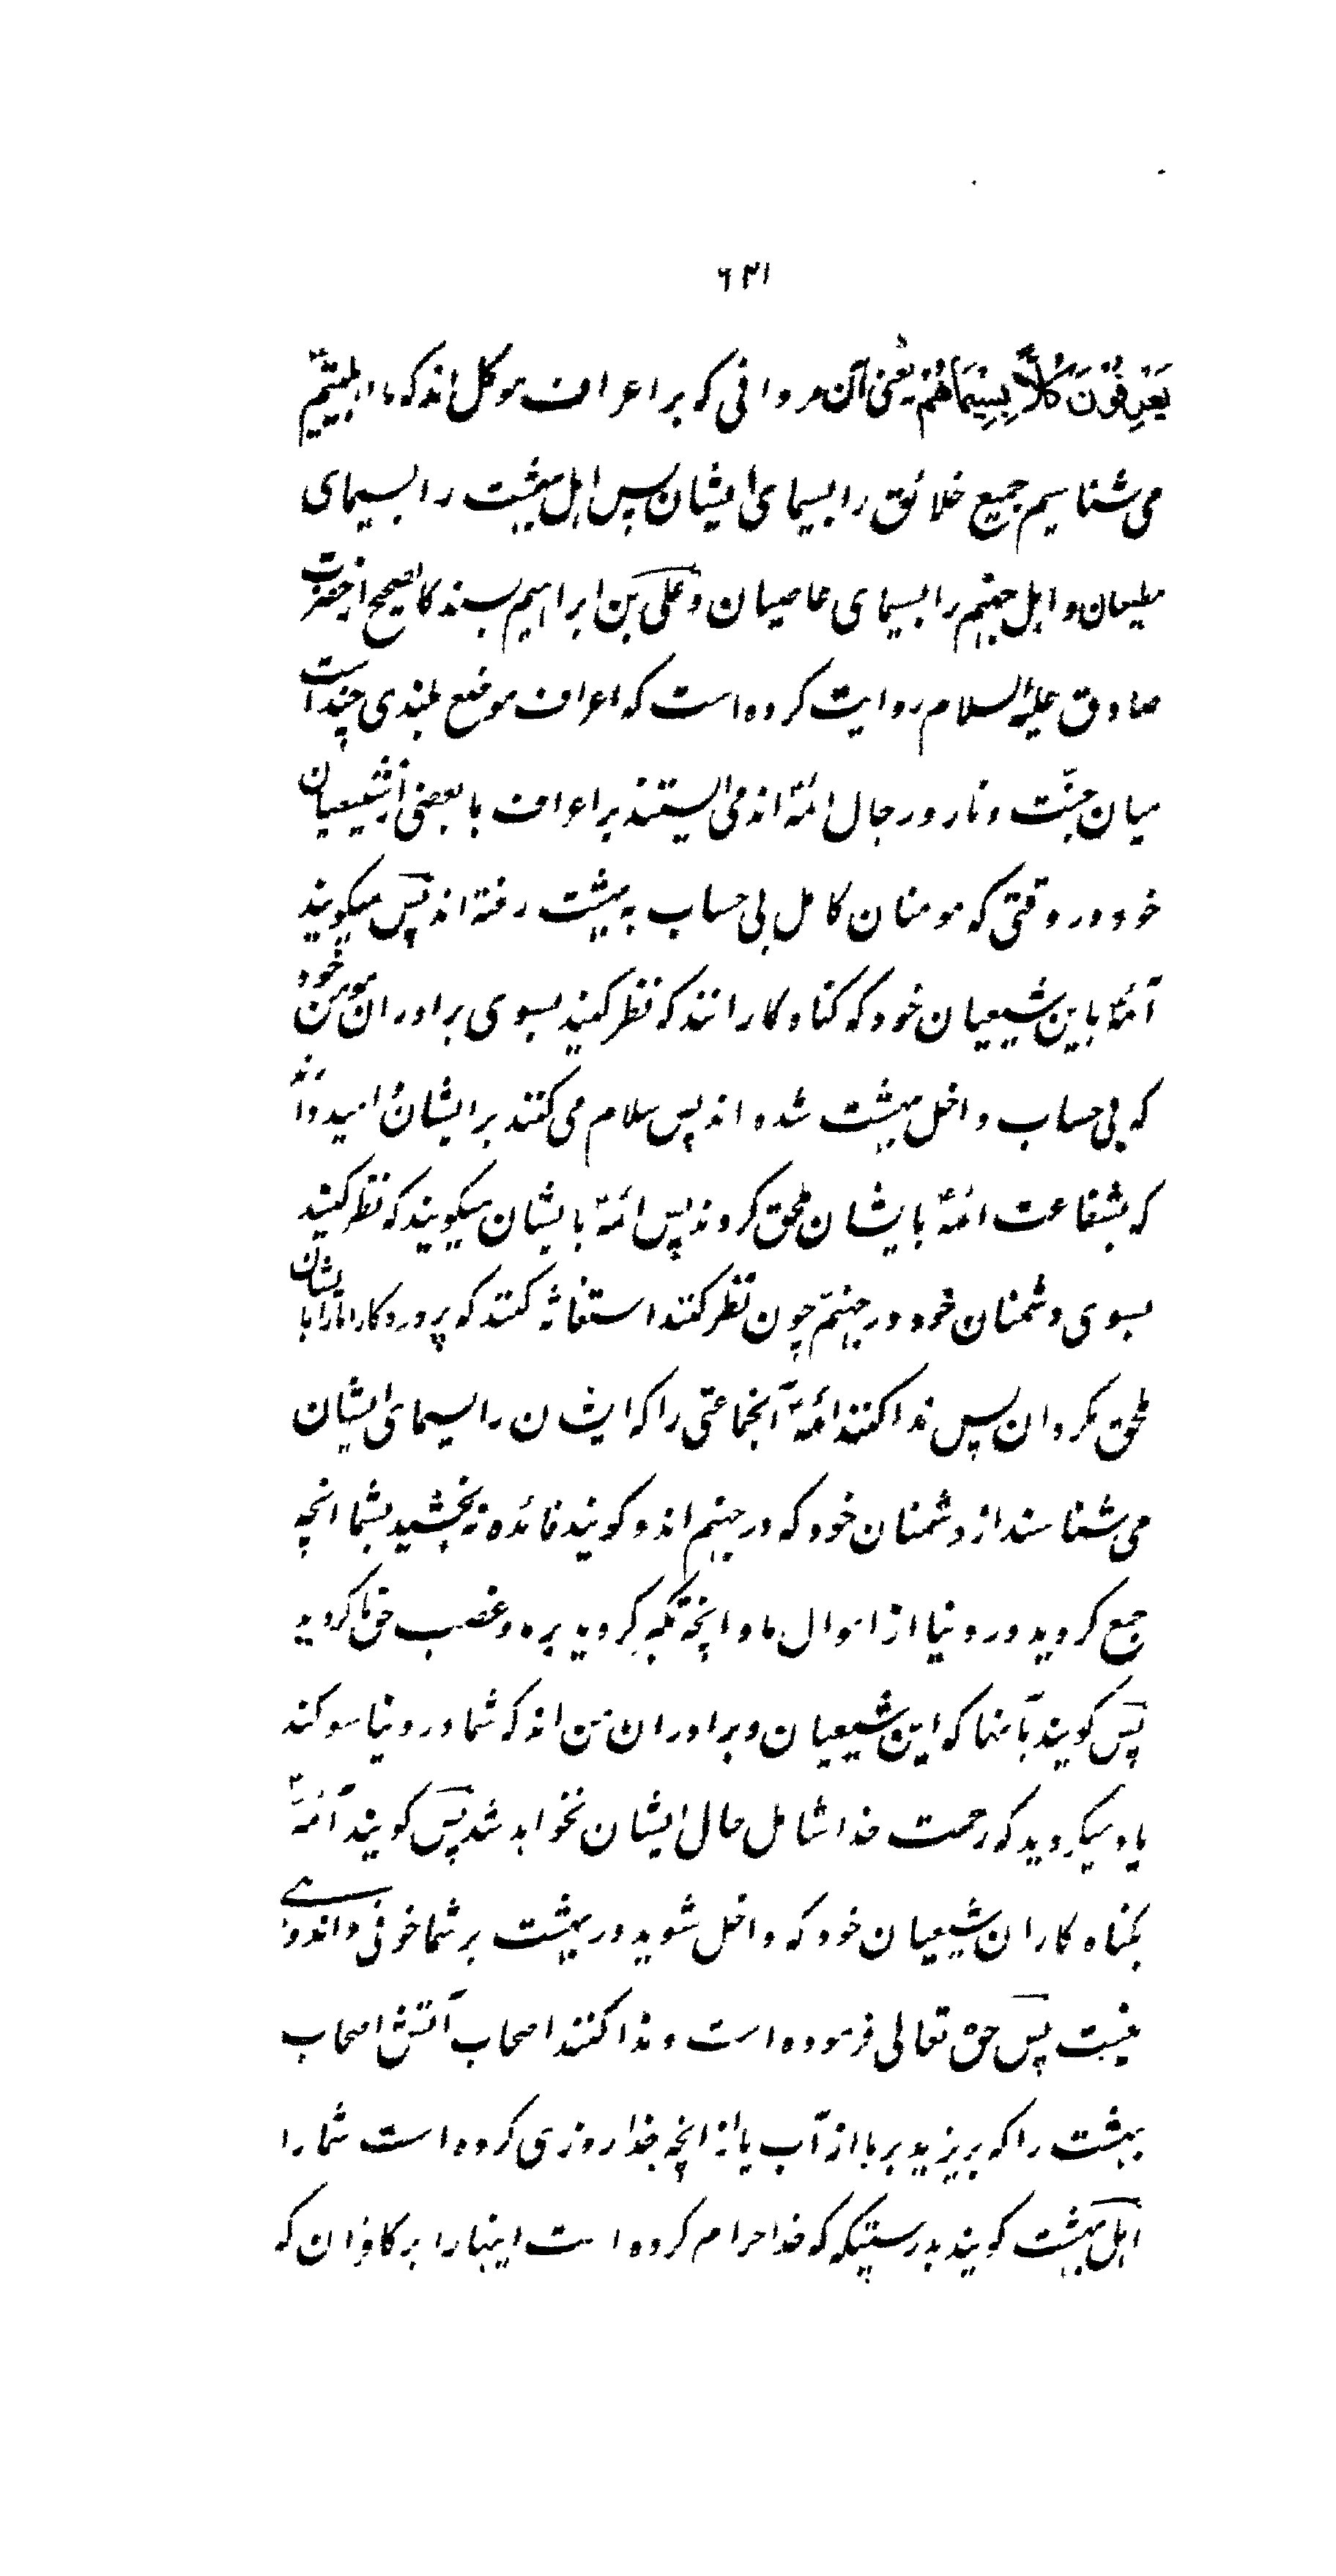 ٦٣١
يَعْرِفُونَ كُلاًّ بِسِيمَاهُمْ یعنی آن مردانی که بر اعراف موکل اند که ما اهلبیتیم
می شناسیم جمیع خلائق را بسیمای ایشان پس اهل بهشت را بسیمای
مطیعان و اهل جهنم را بسیمای عاصیان و علی بن ابراهیم بسند کالصحیح از حضرت
صادق علیه السلام روایت کرده است که اعراف موضع بلندی چند است
میان جنّت و نار و رجال ائمه اند می ایستند بر اعراف با بعضی از شیعیان
خود در وقتی که مومنان کامل بی حساب به بهشت رفته اند پس میکویند
آئمه باین شیعیان خود که کناه کارانند که نظر کنید بسوی برادران مومن خود
که بی حساب داخل بهشت شده اند پس سلام می کنند بر ایشان و امیدوارند
که بشفاعت ائمه بایشان ملحق کردند پس ائمه بایشان میکویند که نظر کنید
بسوی دشمنان خود در جهنم چون نظر کنند استغاثه کنند که پروردکارا ما را با ایشان
ملحق مکردان پس ندا کنند ائمه آنجماعتی را که ایشان را بسیمای ایشان
می شناسند از دشمنان خود که در جهنم اند و کویند فائده نه بخشید بشما انچه
جمع کردید در دنیا از اموال ما و انچه تکبر کردید بر ما و غصب حق ما کردید
پس کویند بآنها که این شیعیان و برادران من اند که شما در دنیا سوکند
یاد میکردید که رحمت خدا شامل حال ایشان نخواهد شد پس کویند آئمه
بکناه کاران شیعیان خود که داخل شوید در بهشت بر شما خوفی و اندوهی
نیست پس حق تعالی فرموده است و ندا کنند اصحاب آتش اصحاب
بهشت را که بریزید بر ما از آب یا از انچه خدا روزی کرده است شما را
اهل بهشت کویند بدرستیکه که خدا حرام کرده است اینها را بر کافران که